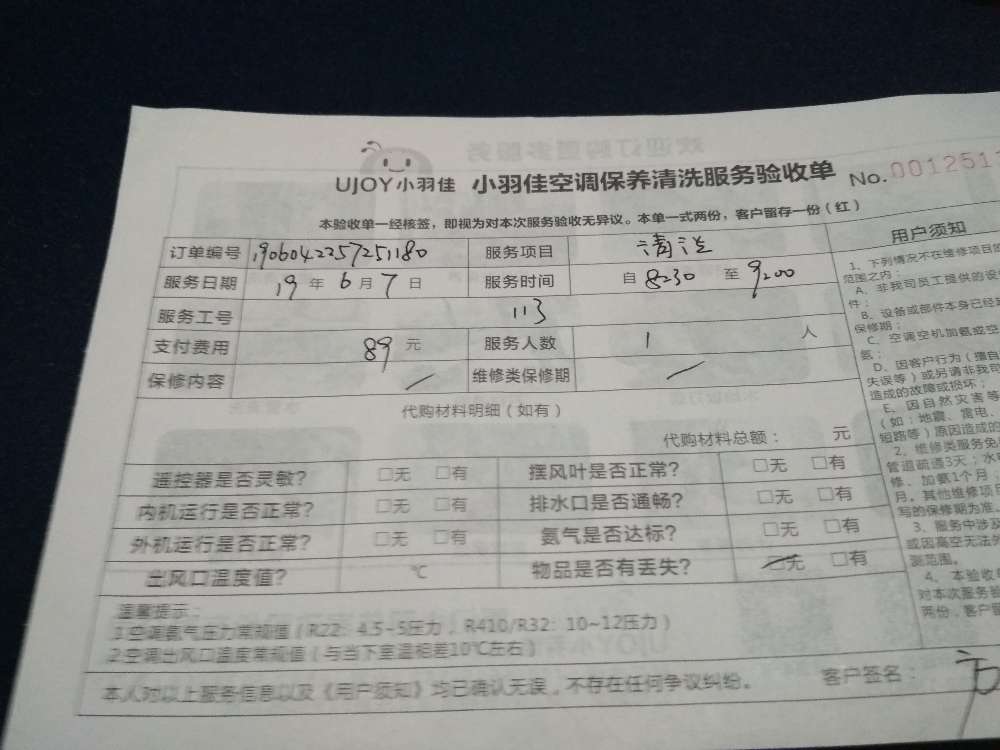 UJOY小羽佳 小羽佳空调保养清洗服务验收单 No.0012511
本验收单一经核签，即视为对本次服务验收无异议。本单一式两份，客户留存一份（红）
订单编号 1906042257251180 服务项目 清洗
服务日期 19年6月7日 服务时间 自 8:30 至 9:00
服务工号 113
支付费用 89元 服务人数 1 人
保修内容 / 维修类保修期 /
代购材料明细（如有）
代购材料总额： 元
遥控器是否灵敏？ □无 □有 摆风叶是否正常？ □无 □有
内机运行是否正常？ □无 □有 排水口是否通畅？ □无 □有
外机运行是否正常？ □无 □有 氨气是否达标？ □无 □有
出风口温度值？ ℃ 物品是否有丢失？ □无 □有
温馨提示：
1.空调氨气压力常规值（R22：4.5~5压力，R410/R32：10~12压力）
2.空调出风口温度常规值（与当下室温相差10℃左右）
本人对以上服务信息以及《用户须知》均已确认无误，不存在任何争议纠纷。 客户签名：
用户须知
1、下列情况不在维修项目
范围之内：
A、非我司员工提供的设
件；
B、设备或部件本身已经
保修期；
C、空调空机加氨或空
氨；
D、因客户行为（擅自
失误等）或另请非我司
造成的故障或损坏；
E、因自然灾害等
（如：地震、雷电、
短路等）原因造成的
2、维修类服务免
管道疏通3天；水
修、加氨1个月，
月。其他维修项目
写的保修期为准。
3、服务中涉及
或因高空无法外
测范围。
4、本验收单
对本次服务验
两份，客户留